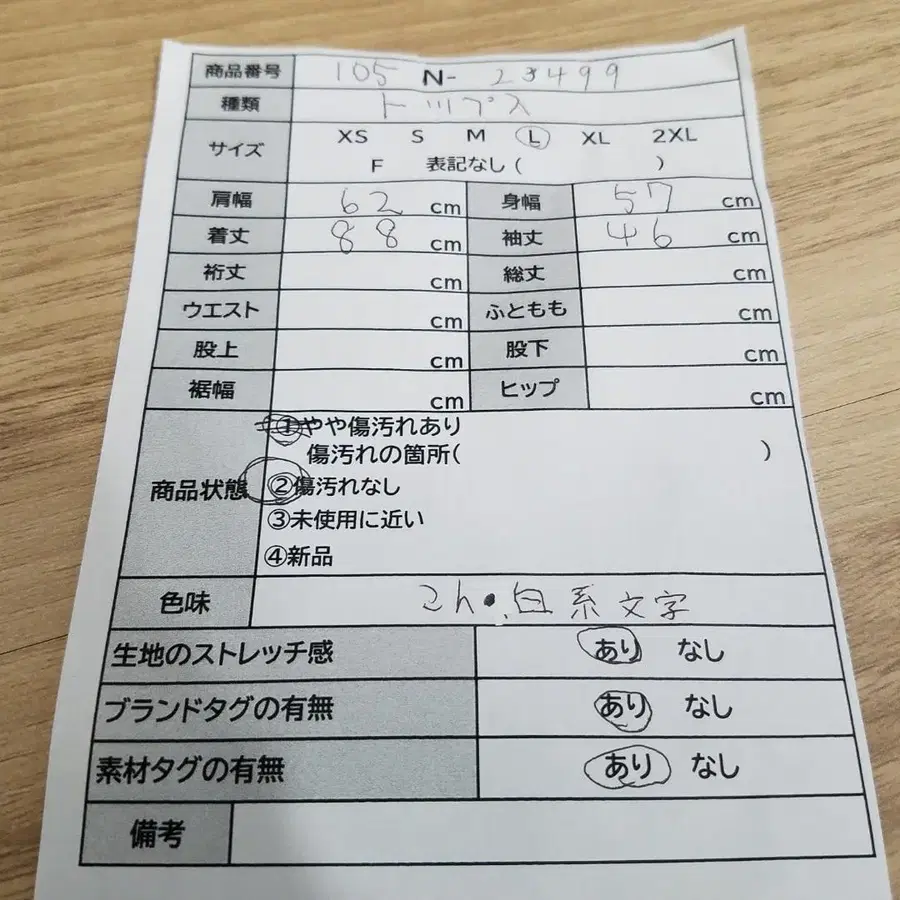 商品番号 105 N- 23499
種類 トップス
サイズ XS S M L XL 2XL
F 表記なし( )
肩幅 62 cm 身幅 57 cm
着丈 88 cm 袖丈 46 cm
裄丈 cm 総丈 cm
ウエスト cm ふともも cm
股上 cm 股下 cm
裾幅 cm ヒップ cm
①やや傷汚れあり
傷汚れの箇所( )
商品状態 ②傷汚れなし
③未使用に近い
④新品
色味 こん・白系文字
生地のストレッチ感 あり なし
ブランドタグの有無 あり なし
素材タグの有無 あり なし
備考